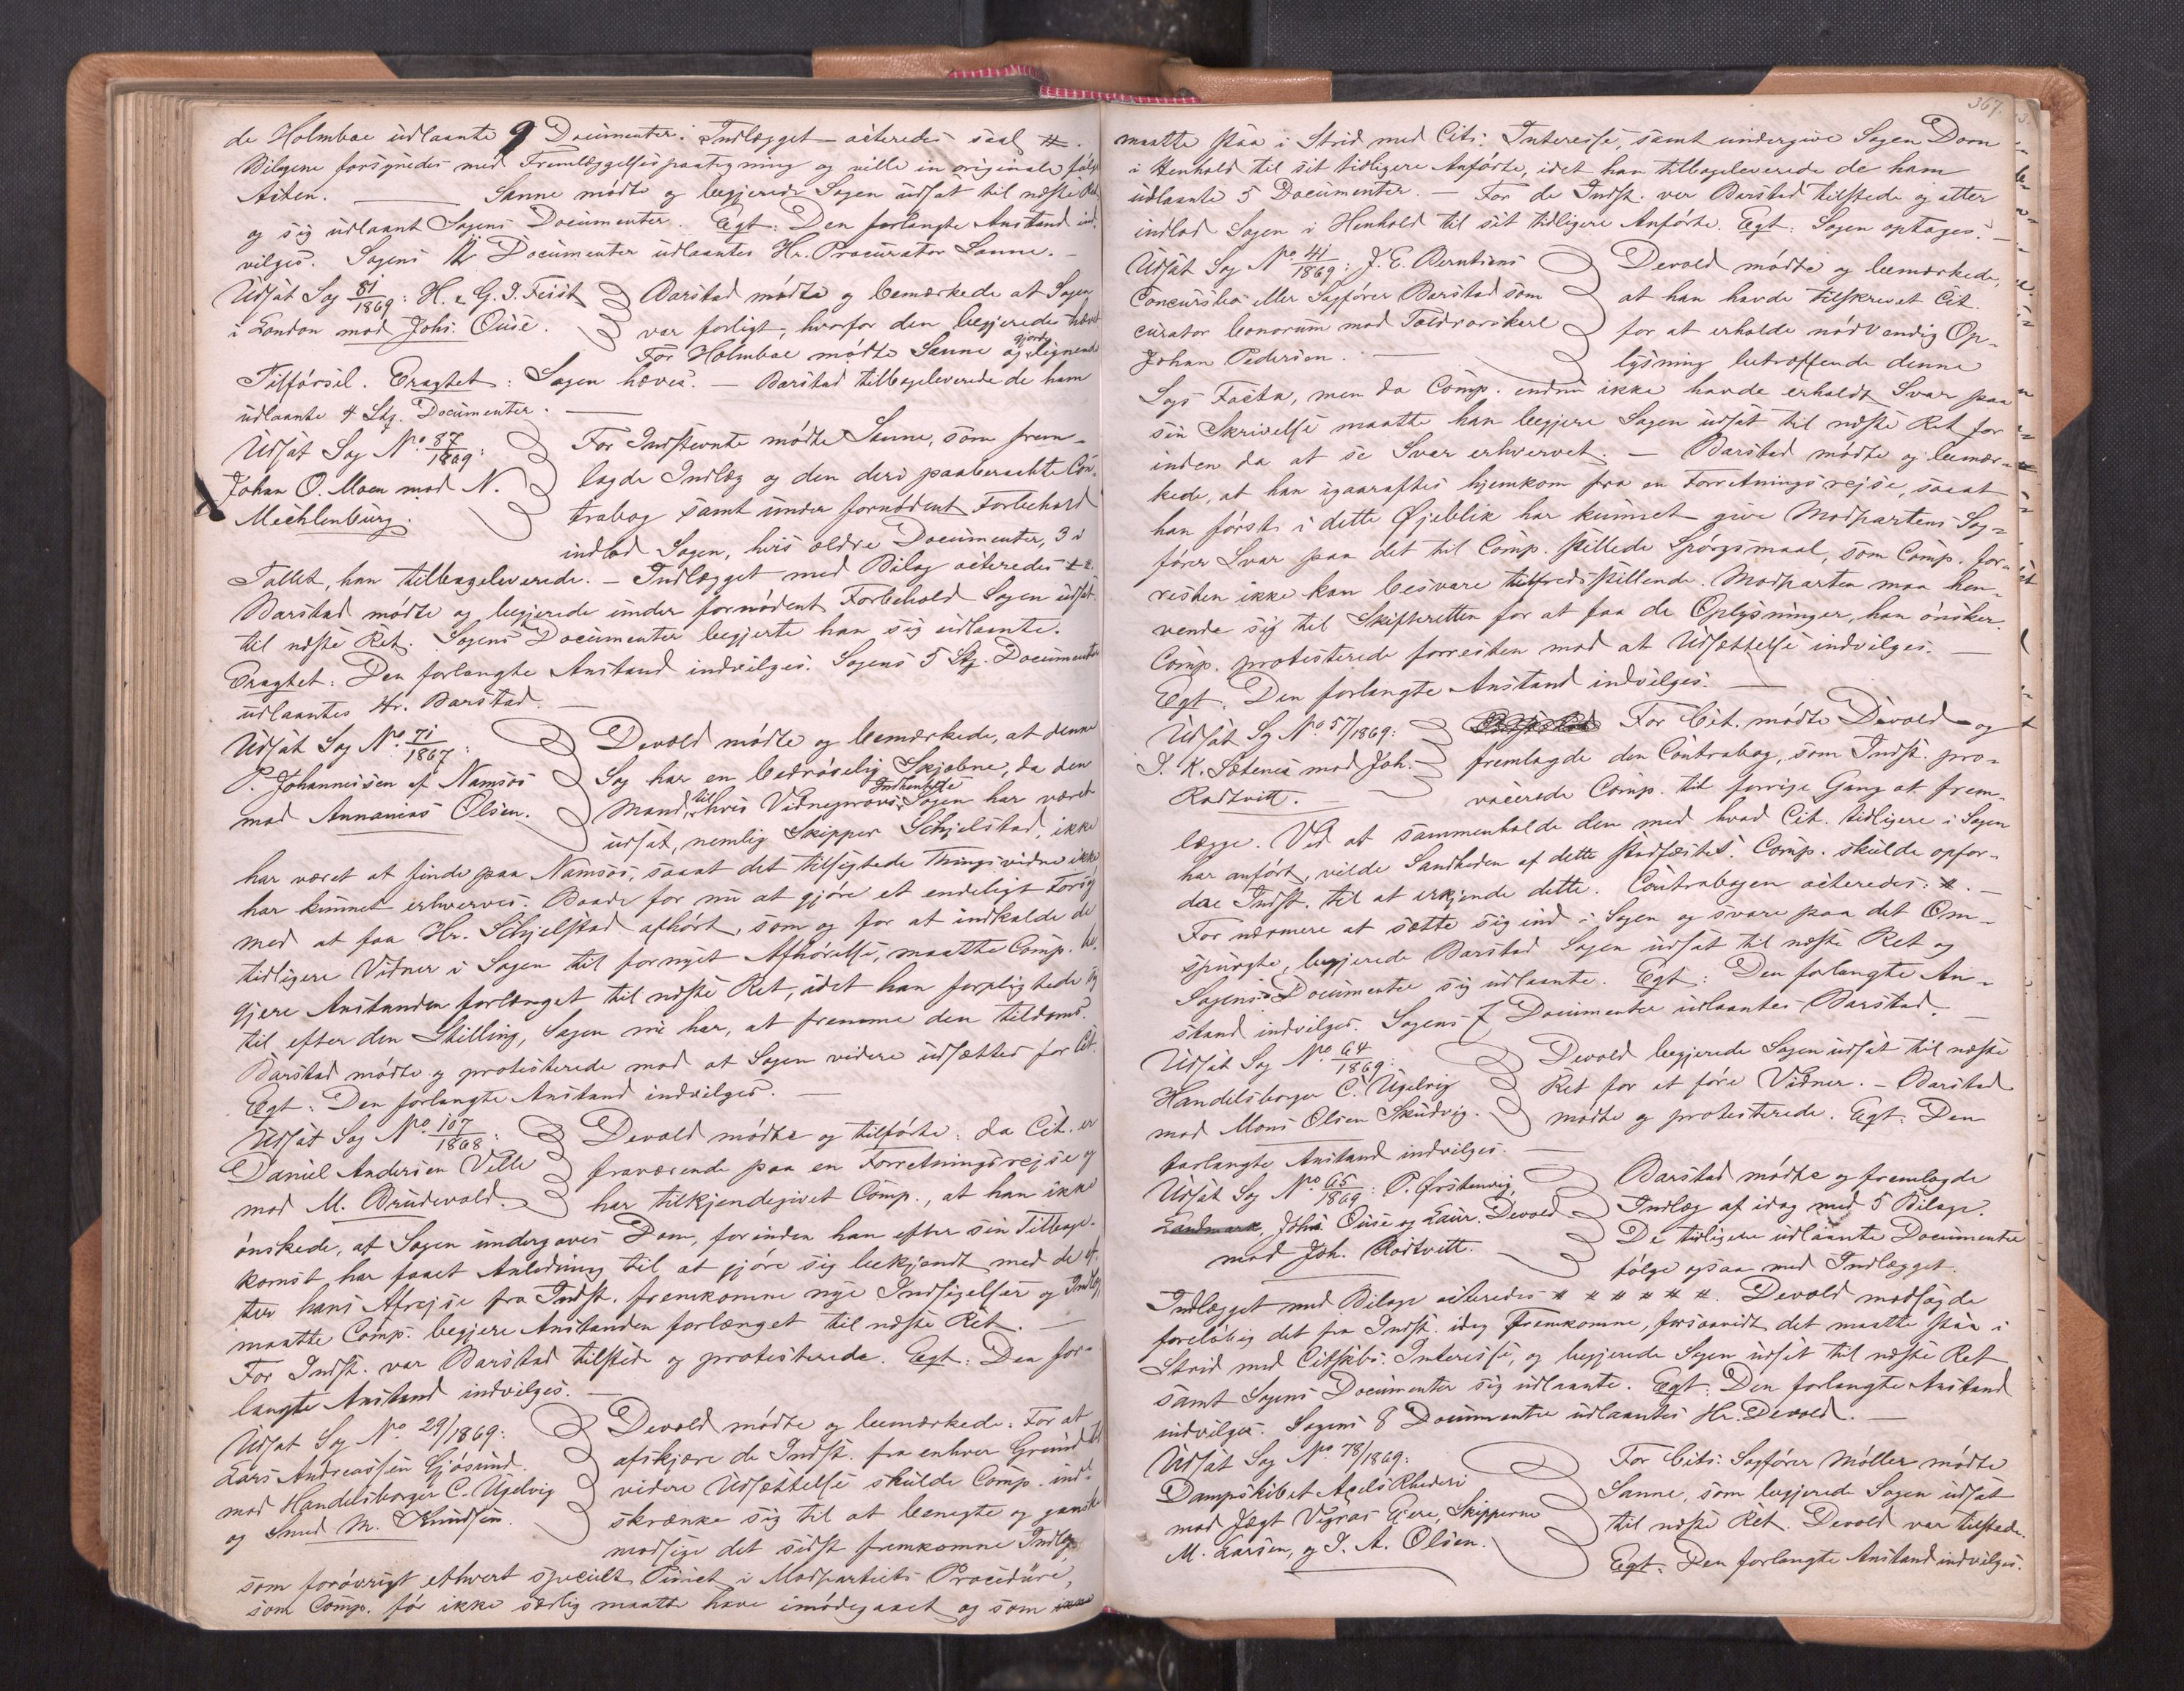 de Holmboe udlaante 9 Documenter. Indlægget acteredes saal #.
Bilagene forsynedes med Fremlæggelsespaategning og ville in originale følge
Acten. — Sanne mødte og begjerede Sagen udsat til næste Ret
og sig udlaant Sagens Documenter. Egt: Den forlangte Anstand ind-
vilges. Sagens Documenter udlaantes Hr. Procurator Sanne. —
Udsat Sag 81/1869: H. & G. T. Feist
i London mod Johs. Ouse.
Barstad mødte og bemærkede at Sagen
var forligt, hvorfor den begjeredes hævet
For Holmboe mødte Sanne og gjorde lignende
Tilførsel. Eragtet: Sagen hæves. — Barstad tilbageleverede de ham
udlaante 4 Stg. Documenter. —
Udsat Sag No. 87/1869:
Johan O. Moen mod N.
Mechlenburg.
For Indstevnte mødte Sanne, som frem-
lagde Indlæg og den deri paaberaabte Con-
trabog samt under fornødent Forbehold
indlod Sagen, hvis ældre Documenter, 3 i
Tallet, han tilbageleverede. — Indlægget med Bilag acteredes # #.
Barstad mødte og begjerede under fornødent Forbehold Sagen udsat
til næste Ret. Sagens Documenter begjerte han sig udlaante.
Eragtet: Den forlangte Anstand indvilges. Sagens 5 Stg. Documenter
udlaantes Hr. Barstad. —
Udsat Sag No. 71/1867:
P. Johannessen af Namsos
mod Annanias Olsen.
Devold mødte og bemærkede, at denne
Sag har en bedrøvelig Skjæbne, da den
Mand, til hvis Vidneprovs Indhentelse Sagen har været
udsat, nemlig Skipper Schjelstad, ikke
har været at finde paa Namsos, saaat det tilsigtede Thingsvidne ikke
har kunnet erhverves. Baade for nu at gjøre et endeligt Forsøg
med at faa Hr. Schjelstad afhørt, som og for at indkalde de
tidligere Vidner i Sagen til fornyet Afhørelse, maatte Comp. be-
gjere Anstanden forlænget til næste Ret, idet han forpligtede sig
til efter den Stilling, Sagen nu har, at fremme den tildoms.
Barstad mødte og protesterede mod at Sagen videre udsættes for Cit.
Egt: Den forlangte Anstand indvilges. —
Udsat Sag No. 107/1868:
Daniel Andersen Velle
mod M. Brudevold.
Devold mødte og tilførte: da Cit. er
fraværende paa en Forretningsrejse og
har tilkjendegivet Comp., at han ikke
ønskede, at Sagen undergaves Dom, forinden han efter sin Tilbage-
komst har faaet Anledning til at gjøre sig bekjendt med de ef-
ter hans Afrejse fra Indst. fremkomne nye Indsigelser og Indlæg,
maatte Comp. begjere Anstanden forlænget til næste Ret. —
For Indst. var Barstad tilstede og protesterede. Egt: Den for-
langte Anstand indvilges. —
Udsat Sag No 29/1869:
Lars Andreassen Gjøsund
mod Handelsborger C. Ugelvig
og Smed M. Knudsen.
Devold mødte og bemærkede: For at
afskjære de Indst. fra enhver Grund til
videre Udsættelse skulde Comp. ind-
skrænke sig til at benegte og ganske
modsige det sidst fremkomne Indlæg
som forøvrigt ethvert specielt Punct i Modpartiets Procedure,
som Comp. før ikke særlig maatte have imødegaaet og som
367.
maatte staa i Strid med Cits. Interesse, samt undergive Sagen Dom
i Henhold til sit tidligere Anførte, idet han tilbageleverede de ham
udlaante 5 Documenter. — For de Indst. var Barstad tilstede og atter
indlod Sagen i Henhold til sit tidligere Anførte. Egt: Sagen optages. —
Udsat Sag No 41/1869: J. E. Berntsens
Concursbo eller Sagfører Barstad som
curator bonorum mod Toldroerskarl
Johan Pedersen. —
Devold mødte og bemærkede,
at han havde tilskrevet Cit.
for at erholde nødvendig Op-
lysning betræffende denne
Sags Facta, men da Comp. endnu ikke havde erholdt Svar paa
sin Skrivelse maatte han begjere Sagen udsat til næste Ret for
inden da at se Svar erhvervet. — Barstad mødte og bemær-
kede, at han igaaraftes hjemkom fra en Forretningsrejse, saaat
han først i dette Øjeblik har kunnet give Modpartens Sag-
fører Svar paa det til Comp. stillede Spørgsmaal, som Comp. for-
resten ikke kan besvare tilfredsstillende. Modparten maa hen-
vende sig til Skifteretten for at faa de Oplysninger, han ønsker.
Comp. protesterede forresten mod at Udsættelse indvilges. —
Egt: Den forlangte Anstand indvilges. —
Udsat Sg No 57/1869:
J. K. Sætenes mod Joh.
Rødtvitt. —
For Cit. mødte Devold og
fremlagde den Contrabog, som Indst. pro-
vocerede Comp. til forrige Gang at frem-
lægge. Ved at sammenholde den med hvad Cit. tidligere i Sagen
har anført, vilde Sandheden af dette stadfæstes. Comp. skulde opfor-
dre Indst. til at erkjende dette. Contrabogen acteredes: #. —
For nærmere at sætte sig ind i Sagen og svare paa det Om-
spurgte, begjerede Barstad Sagen udsat til næste Ret og
Sagens Documenter sig udlaante. Egt: Den forlangte An-
stand indvilges. Sagens 7 Documenter udlaantes Barstad. —
Udsat Sag No. 64/1869:
Handelsborger C. Ugelvig
mod Mons Olsen Skudvig.
Devold begjerede Sagen udsat til næste
Ret for at føre Vidner. — Barstad
mødte og protesterede. Egt: Den
forlangte Anstand indvilges. —
Udsat Sag No. 65/1869: P. Ørstenvig,
Landmark, Johs Ouse og Laur. Devold
mod Joh. Rødtvitt.
Barstad mødte og fremlagde
Indlæg af idag med 5 Bilage.
De tidligere udlaante Documenter
følge ogsaa med Indlægget.
Indlægget med Bilage acteredes # # # # # #. Devold modsagde
foreløbig det fra Indst. idag Fremkomne, forsaavidt det maatte staa i
Strid med Citskbs. Interesse, og begjerede Sagen udsat til næste Ret
samt Sagens Documenter sig udlaante. Egt: Den forlangte Anstand
indvilges. Sagens 8 Documenter udlaantes Hr. Devold. —
Udsat Sag No. 78/1869:
Dampskibet Axels Rhederi
mod Jægt Vigras Ejere, Skipperne
M. Larsen, og J. A. Olsen.
For Cits: Sagfører Møller mødte
Sanne, som begjerede Sagen udsat
til næste Ret. Devold var tilstede.
Egt: Den forlangte Anstand indvilges.